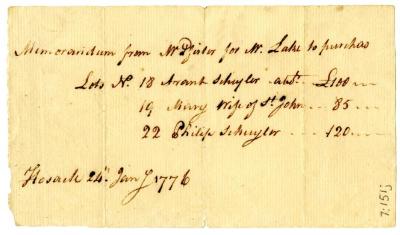 Memorandum from Mr Pfister for Mr. Lake to purchas
Lots No. 18 Arant Schuyler abt. £100
19 Mary Wife of St John 85
22 Philip Schuyler 120
Hosack 24th Jany 1776
7:151j